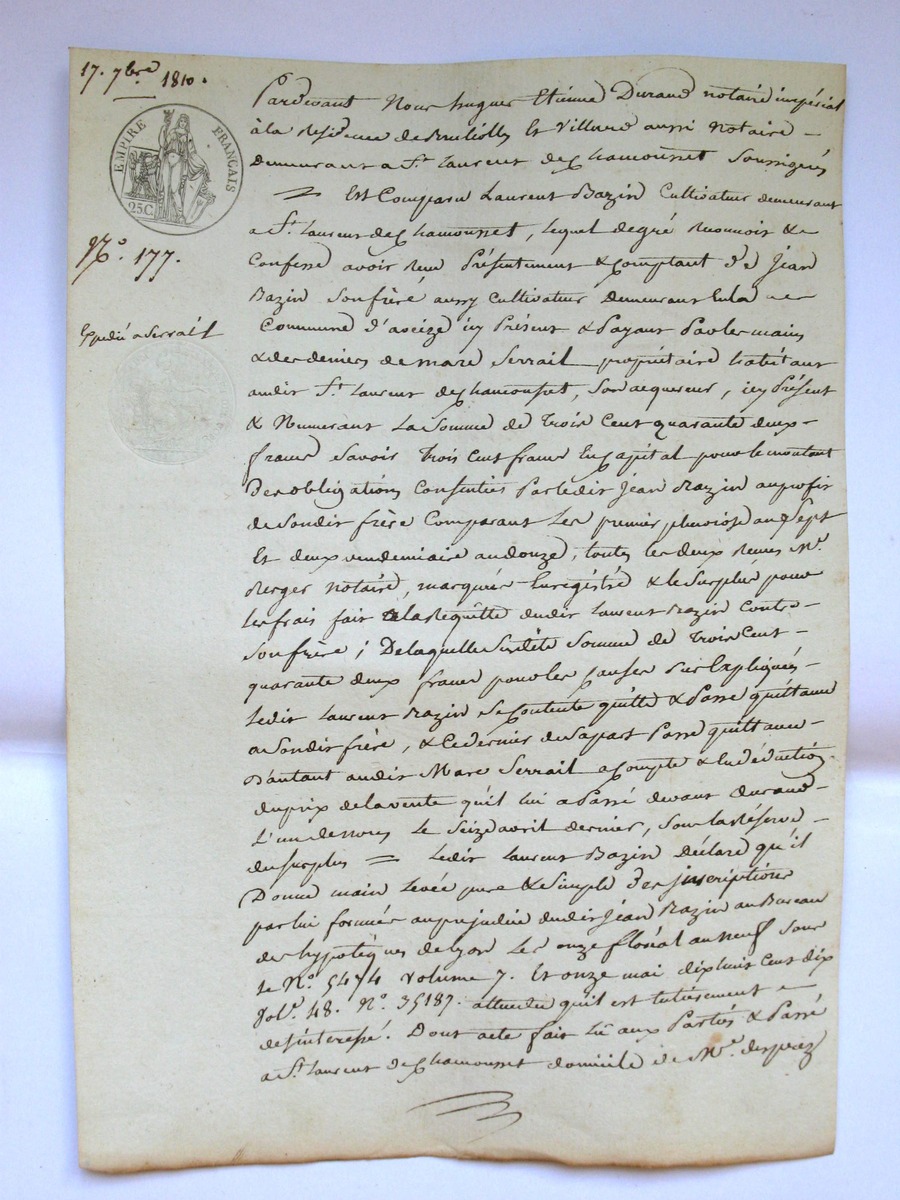 17. 7bre 1810.
EMPIRE FRANÇAIS
25 C.
N.º 177.
Expedié a Serrail
Pardevant Nous hugues Etienne Durand notaire impérial
à la Residence de Et Villard aussi Notaire –
demeurant a St Laurent de Chamousset Soussignés
= Est Comparu Laurent Bazin Cultivateur demeurant
a St Laurent de Chamousset, lequel de gré Reconnoit &
Confesse avoir Reçu Présentement & Comptant De Jean
Bazin Son frère, aussy Cultivateur demeurant En la
Commune d'aveize icy Présent & Payant Par les mains
& des deniers de marc Serrail propriétaire habitant
audit St Laurent de Chamousset, Son acquereur, icy Présent
& Numerant La Somme de Trois Cent quarante deux –
francs Savoir Trois Cent francs En Capital pour le montant
Des obligations Consenties Par ledit Jean Bazin au profit
de Son dit frère Comparant Les premier pluviose an Sept
Et deux vendemiaire an douze, toutes les deux Reçues Me.
Berger Notaire, Enregistré & le Surplus pour
les frais fait a la Requête dudit Laurent Bazin Contre –
Son frère; De laquelle Susdite Somme de Trois Cent –
quarante deux francs pour les Causes Sus Expliquées –
Ledit Laurent Bazin Se Contente quitte & Passe quittance
a Son dit frère, & Ce dernier de Sa part Passe quittance –
D'autant audit Marc Serrail a Compte & En déduction
du prix de la vente qu'il lui a Passé devant durand –
L'un de nous Le Seize avril dernier, Sous la Réserve –
du Surplus = Ledit Laurent Bazin Déclare qu'il
Donne main Levée pure & Simple Des inscriptions
par lui formées au prejudice dudit Jean Bazin au Bureau
des hypotèques de Lyon Les onze floréal an neuf Sous
le No. 5474 volume 7. Et onze mai dix huit Cent dix
Vol.e 48. No. 35187. attendu qu'il est
desinteressé. Dont acte fait lû aux Parties & Passé
a St Laurent de Chamousset domicile de Me.